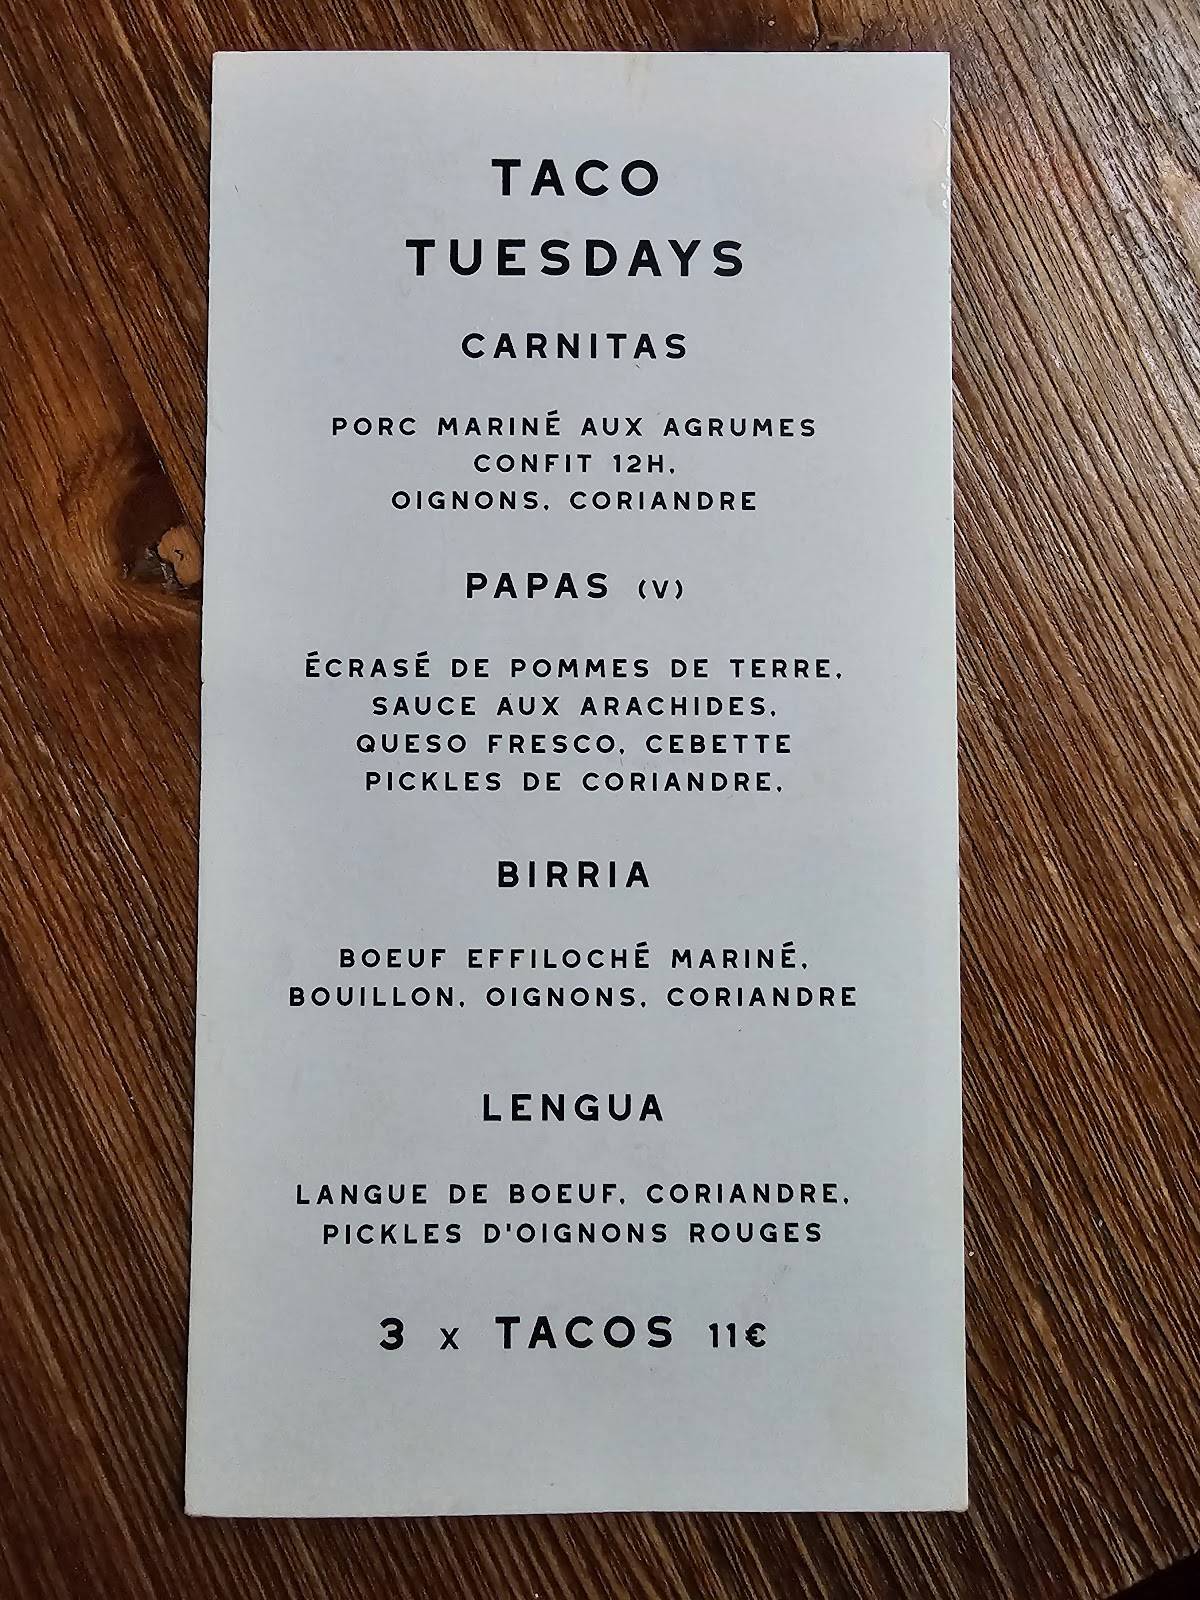 TACO
TUESDAYS
CARNITAS
PORC MARINÉ AUX AGRUMES
CONFIT 12H,
OIGNONS, CORIANDRE
PAPAS (V)
ÉCRASÉ DE POMMES DE TERRE,
SAUCE AUX ARACHIDES,
QUESO FRESCO, CEBETTE
PICKLES DE CORIANDRE,
BIRRIA
BOEUF EFFILOCHÉ MARINÉ,
BOUILLON, OIGNONS, CORIANDRE
LENGUA
LANGUE DE BOEUF, CORIANDRE,
PICKLES D'OIGNONS ROUGES
3 x TACOS 11€